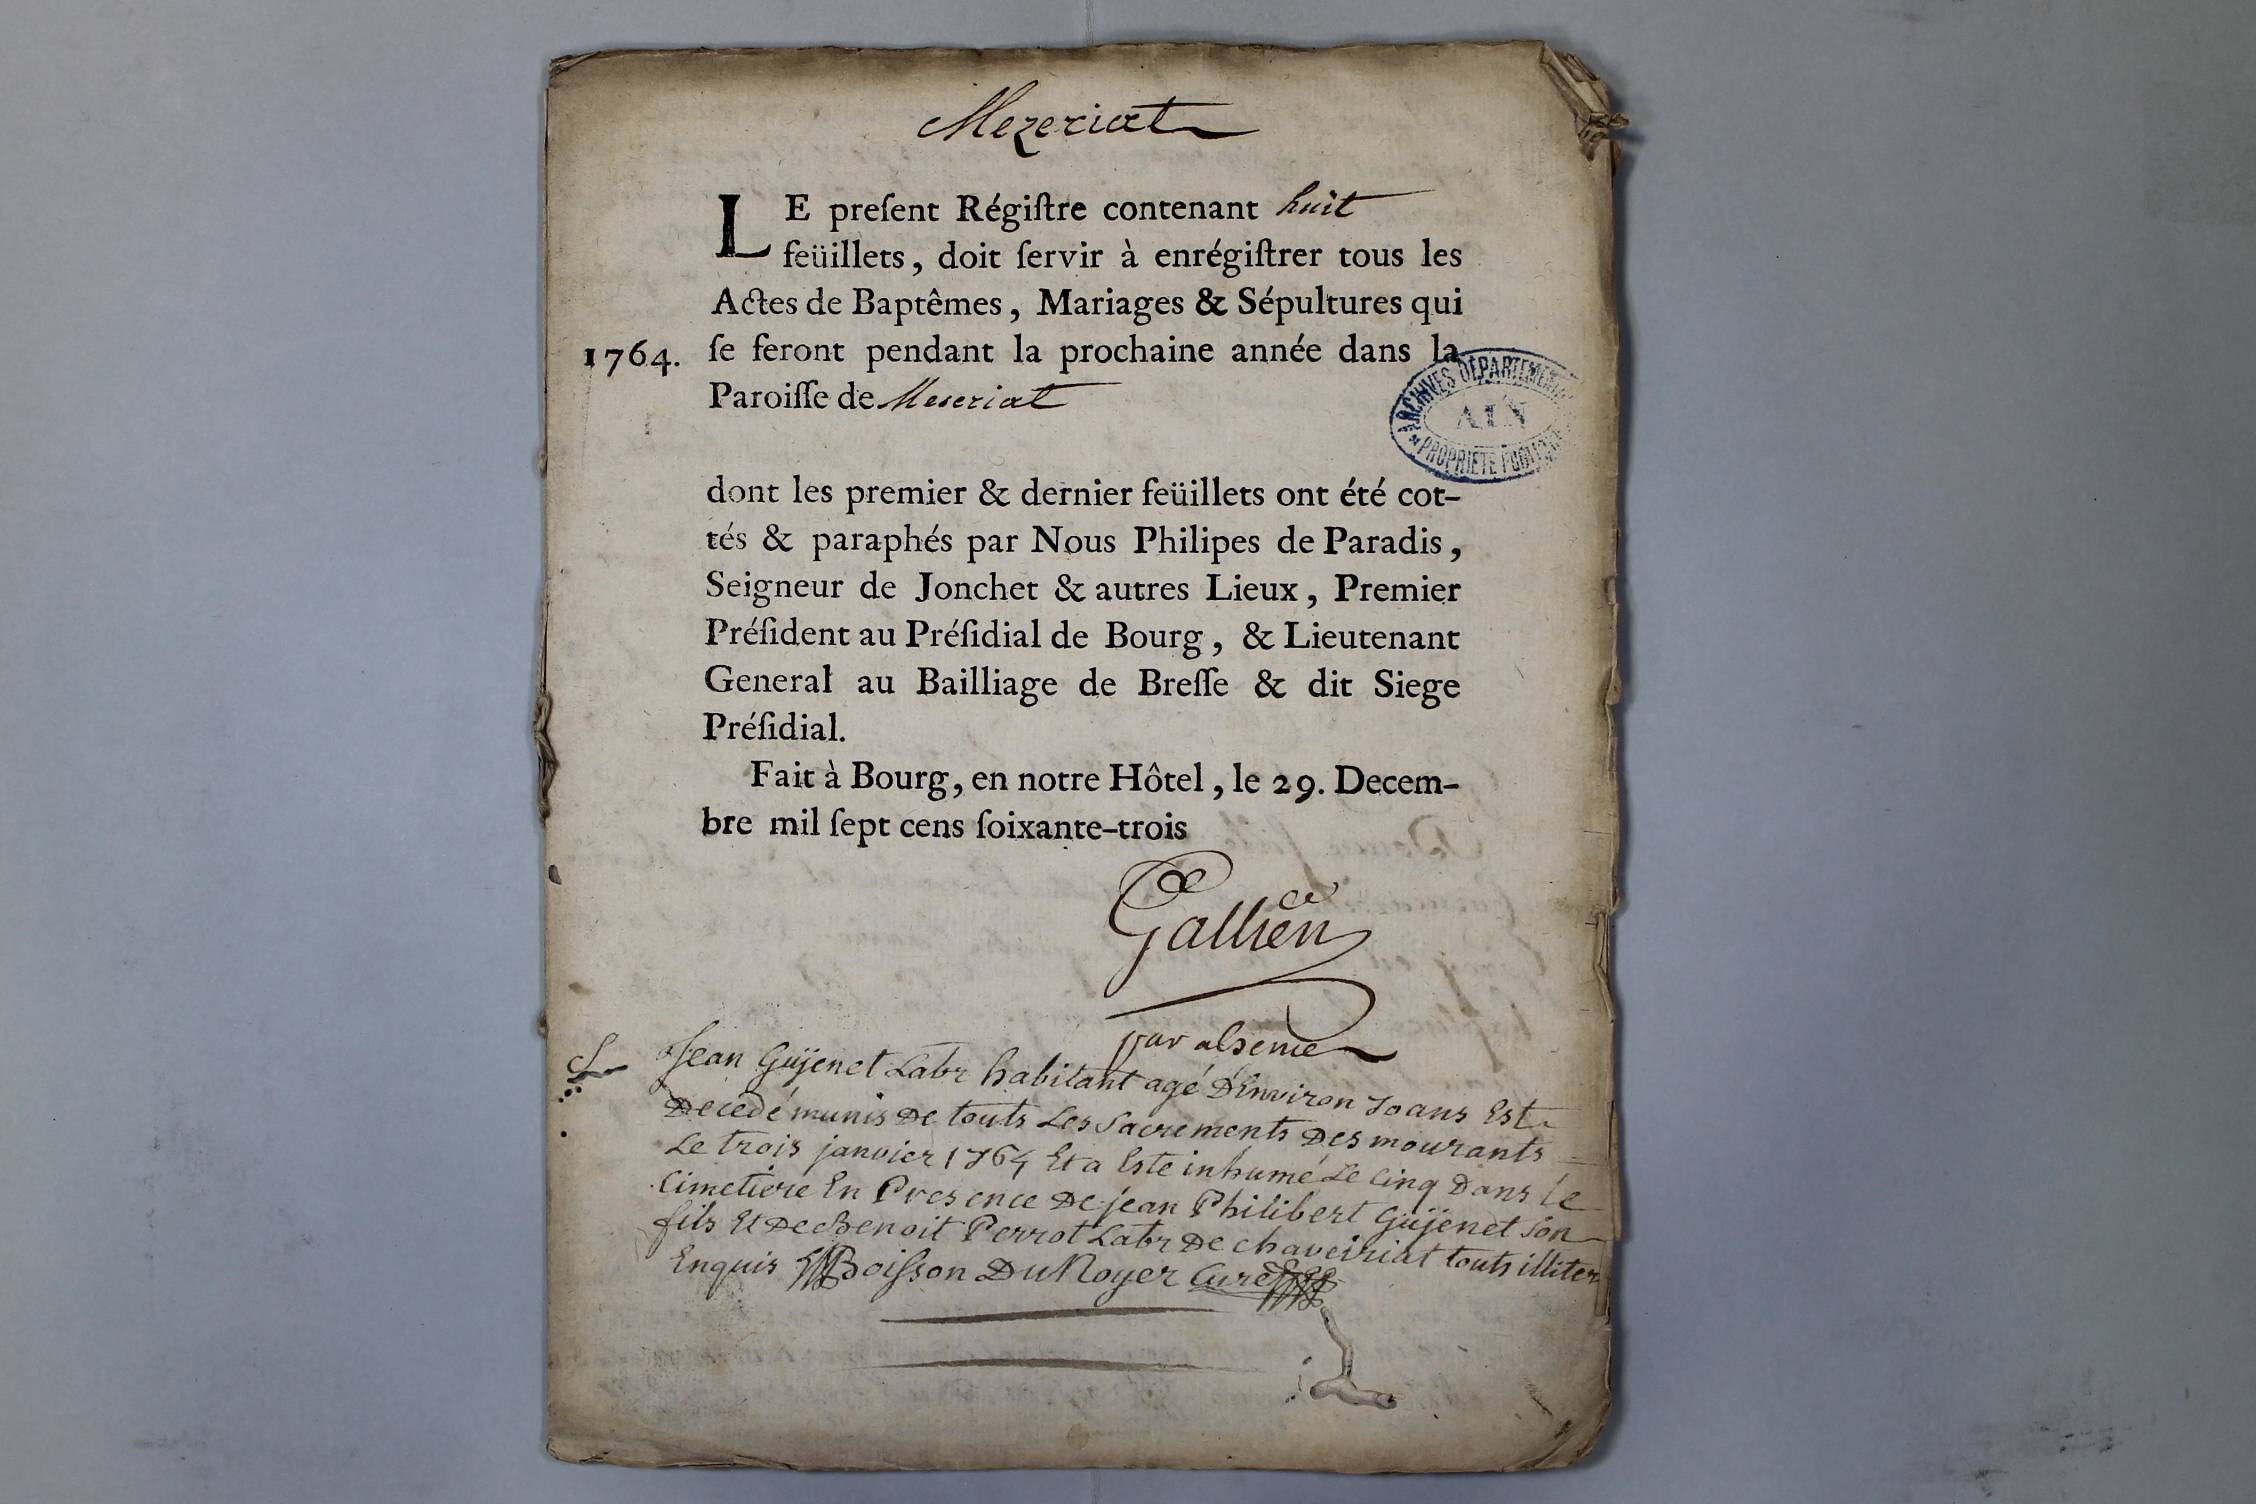 Mezeriat
LE preſent Régiſtre contenant huit
feüillets, doit ſervir à enrégiſtrer tous les
Actes de Baptêmes, Mariages & Sépultures qui
1764. ſe feront pendant la prochaine année dans la
Paroiſſe de Meseriat
ARCHIVES DÉPARTEMENTALES
AIN
PROPRIÉTÉ PUBLIQUE
dont les premier & dernier feüillets ont été cot-
tés & paraphés par Nous Philipes de Paradis,
Seigneur de Jonchet & autres Lieux, Premier
Préſident au Préſidial de Bourg, & Lieutenant
General au Bailliage de Breſſe & dit Siege
Préſidial.
Fait à Bourg, en notre Hôtel, le 29. Decem-
bre mil ſept cens ſoixante-trois
Gallien
par absence
S
Jean Guÿenet Labr habitant agé D'Environ 70 ans Est
Decedé munis De touts Les Sacrements Des mourants
Le trois janvier 1764 Et a Este inhumé Le Cinq Dans le
Cimetiere En Presence De jean Philibert Guÿenet Son
fils Et De Benoit Perrot Labr De chaveiriat touts illiter
Enquis Boiſson Du Noyer Curé